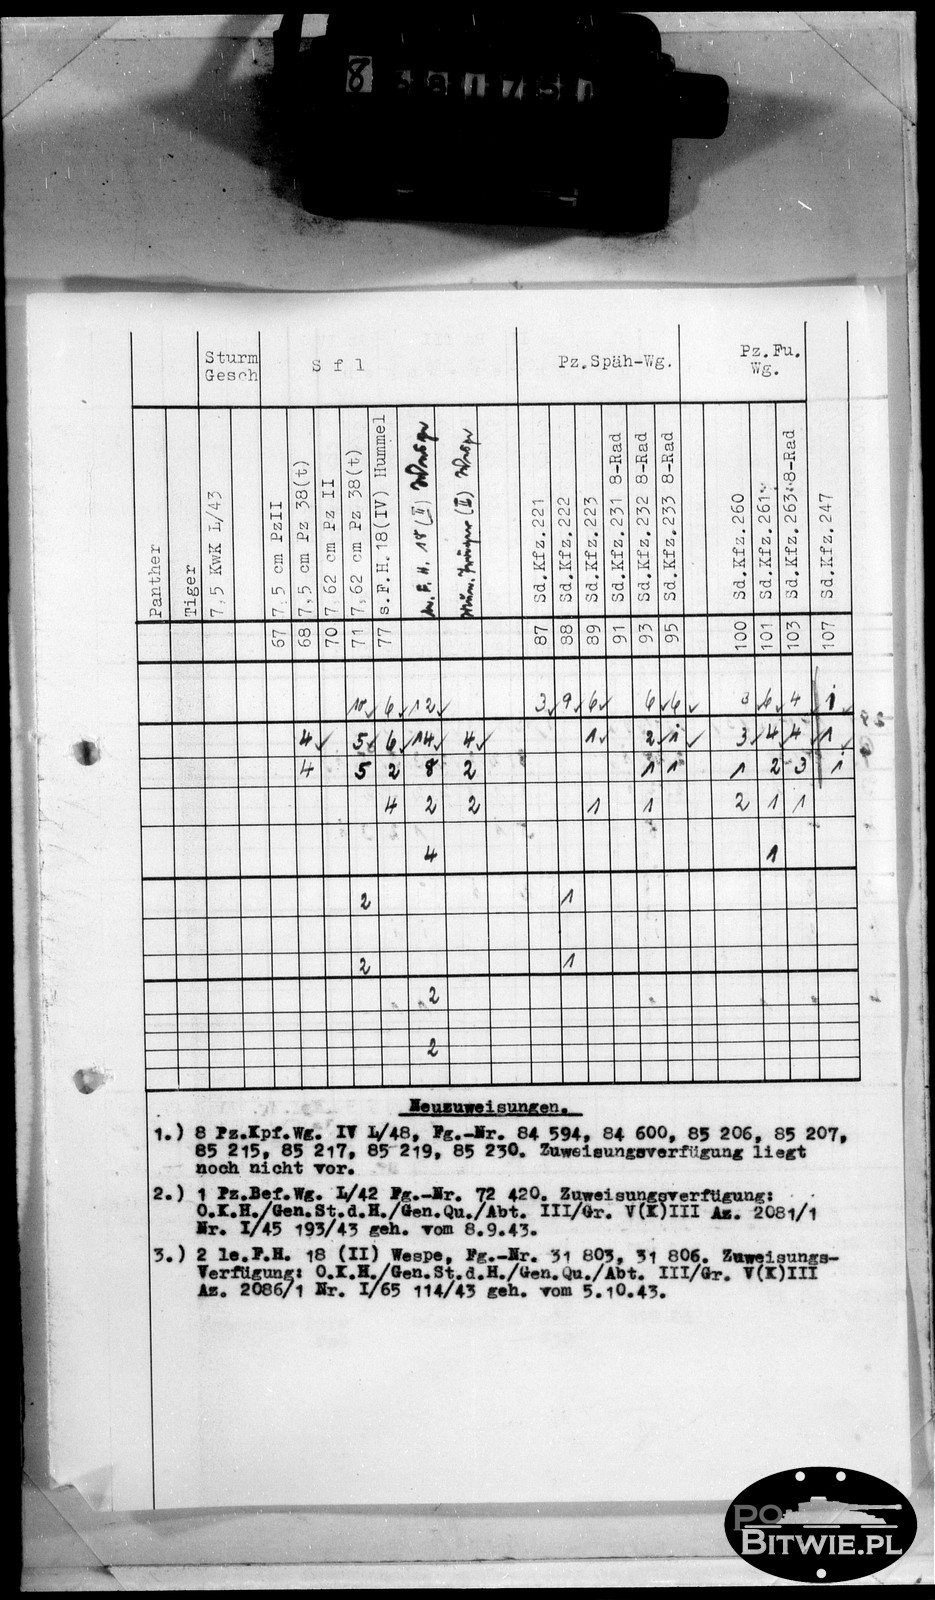 Sturm Gesch
S f l
Pz.Späh-Wg.
Pz.Fu. Wg.
Panther
Tiger
7,5 KwK L/43
67 7,5 cm PzII
68 7,5 cm Pz 38(t)
70 7,62 cm Pz II
71 7,62 cm Pz 38(t)
77 s.F.H.18(IV) Hummel
le. F. H. 18 (II) Wespe
Mun. Träger (II) Wespe
87 Sd.Kfz.221
88 Sd.Kfz.222
89 Sd.Kfz.223
91 Sd.Kfz.231 8-Rad
93 Sd.Kfz.232 8-Rad
95 Sd.Kfz.233 8-Rad
100 Sd.Kfz.260
101 Sd.Kfz.261
103 Sd.Kfz.263 8-Rad
107 Sd.Kfz.247
10 6 12 3 9 6 6 6 3 6 4 1
4 5 6 14 4 1 2 1 3 4 4 1
4 5 2 8 2 1 1 1 2 3 1
4 2 2 1 1 2 1 1
4 1
2 1
2 1
2
2
Neuzuweisungen.
1.) 8 Pz.Kpf.Wg. IV L/48, Fg.-Nr. 84 594, 84 600, 85 206, 85 207,
85 215, 85 217, 85 219, 85 230. Zuweisungsverfügung liegt
noch nicht vor.
2.) 1 Pz.Bef.Wg. L/42 Fg.-Nr. 72 420. Zuweisungsverfügung:
O.K.H./Gen.St.d.H./Gen.Qu./Abt. III/Gr. V(K)III Az. 2081/1
Nr. I/45 193/43 geh. vom 8.9.43.
3.) 2 le.F.H. 18 (II) Wespe, Fg.-Nr. 31 803, 31 806. Zuweisungs-
Verfügung: O.K.H./Gen.St.d.H./Gen.Qu./Abt. III/Gr. V(K)III
Az. 2086/1 Nr. I/65 114/43 geh. vom 5.10.43.
PO
BITWIE.PL